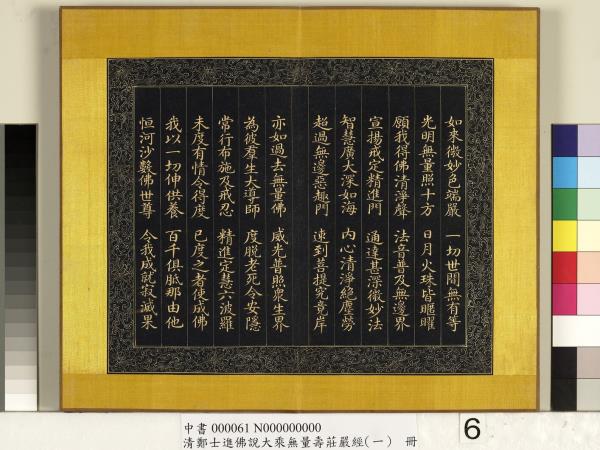 如來微妙色端嚴 一切世間無有等
光明無量照十方 日月火珠皆匿曜
願我得佛清淨聲 法音普及無邊界
宣揚戒定精進門 通達甚深微妙法
智慧廣大深如海 內心清淨絕塵勞
超過無邊惡趣門 速到菩提究竟岸
亦如過去無量佛 威光普照衆生界
為彼群生大導師 度脫老死令安隱
常行布施及戒忍 精進定慧六波羅
未度有情令得度 已度之者使成佛
我以一切伸供養 百千俱胝那由他
恒河沙數佛世尊 令我成就寂滅果
中書 000061 N000000000
清鄭士進佛說大乘無量壽莊嚴經(一) 冊
6